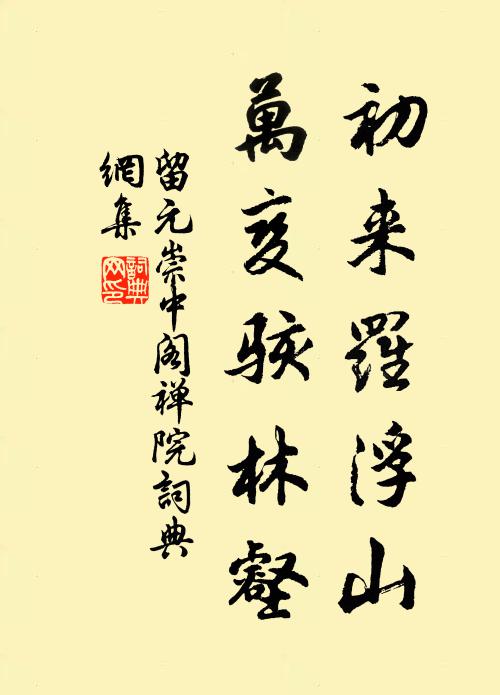 初来羅浮山
萬变骇林壑
留元崇中阁禅院詞典
網集
詞典
网印